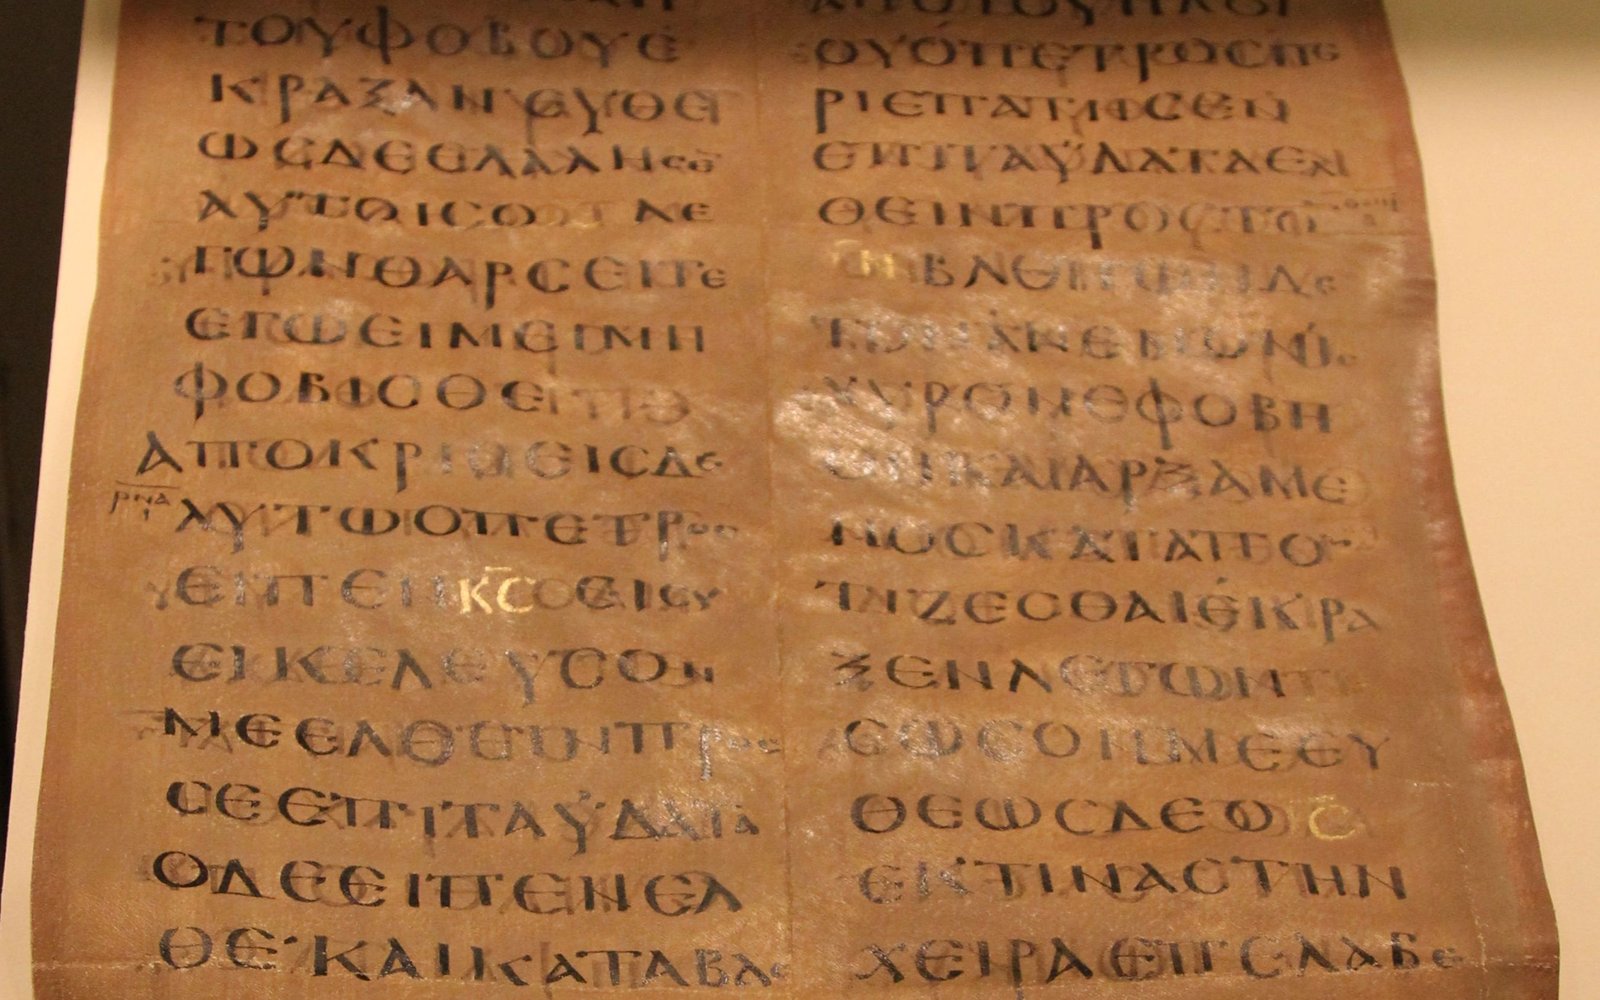 ΤΟΥΦΟΒΟΥΕ
ΚΡΑΞΑΝΕΥΘΕ
ΩCΔΕΕΛΑΛΗCΕ
ΑΥΤΟΙCΟ ΛΕ
ΓΩΝΘΑΡCΕΙΤΕ
ΕΓΩΕΙΜΕΙΜΗ
ΦΟΒΙCΘΕ
ΑΠΟΚΡΙΘΕΙCΔΕ
ΡΝΑ
ΑΥΤΩΟΠΕΤΡΟC
ΕΙΠΕΝΚ̅C̅ΕΙCΥ
ΕΙΚΕΛΕΥCΟΝ
ΜΕΕΛΘΕΙΝΠΡΟC
CΕΕΠΙΤΑΫΔΑΤΑ
ΟΔΕΕΙΠΕΝΕΛ
ΘΕ·ΚΑΙΚΑΤΑΒΑC
ΑΠΟΤΟΥΠΛΟΙ
ΟΥΟΠΕΤΡΟCΠΕ
ΡΙΕΠΑΤΗCΕΝ
ΕΠΙΤΑΫΔΑΤΑΕΛ
ΘΕΙΝΠΡΟCΤΟ
Ι̅Ν̅ΒΛΕΠΩΝΔΕ
ΤΟΝΑΝΕΜΟΝΙC
ΧΥΡΟΝΕΦΟΒΗ
ΘΗΚΑΙΑΡΞΑΜΕ
ΝΟCΚΑΤΑΠΟ
ΤΙΖΕCΘΑΙΕΚΡΑ
ΞΕΝΛΕΓΩΝ
CΩCΟΝΜΕΕΥ
ΘΕΩCΔΕΟΙ̅C̅
ΕΚΤΙΝΑCΤΗΝ
ΧΕΙΡΑΕΠΕΛΑΒΕ